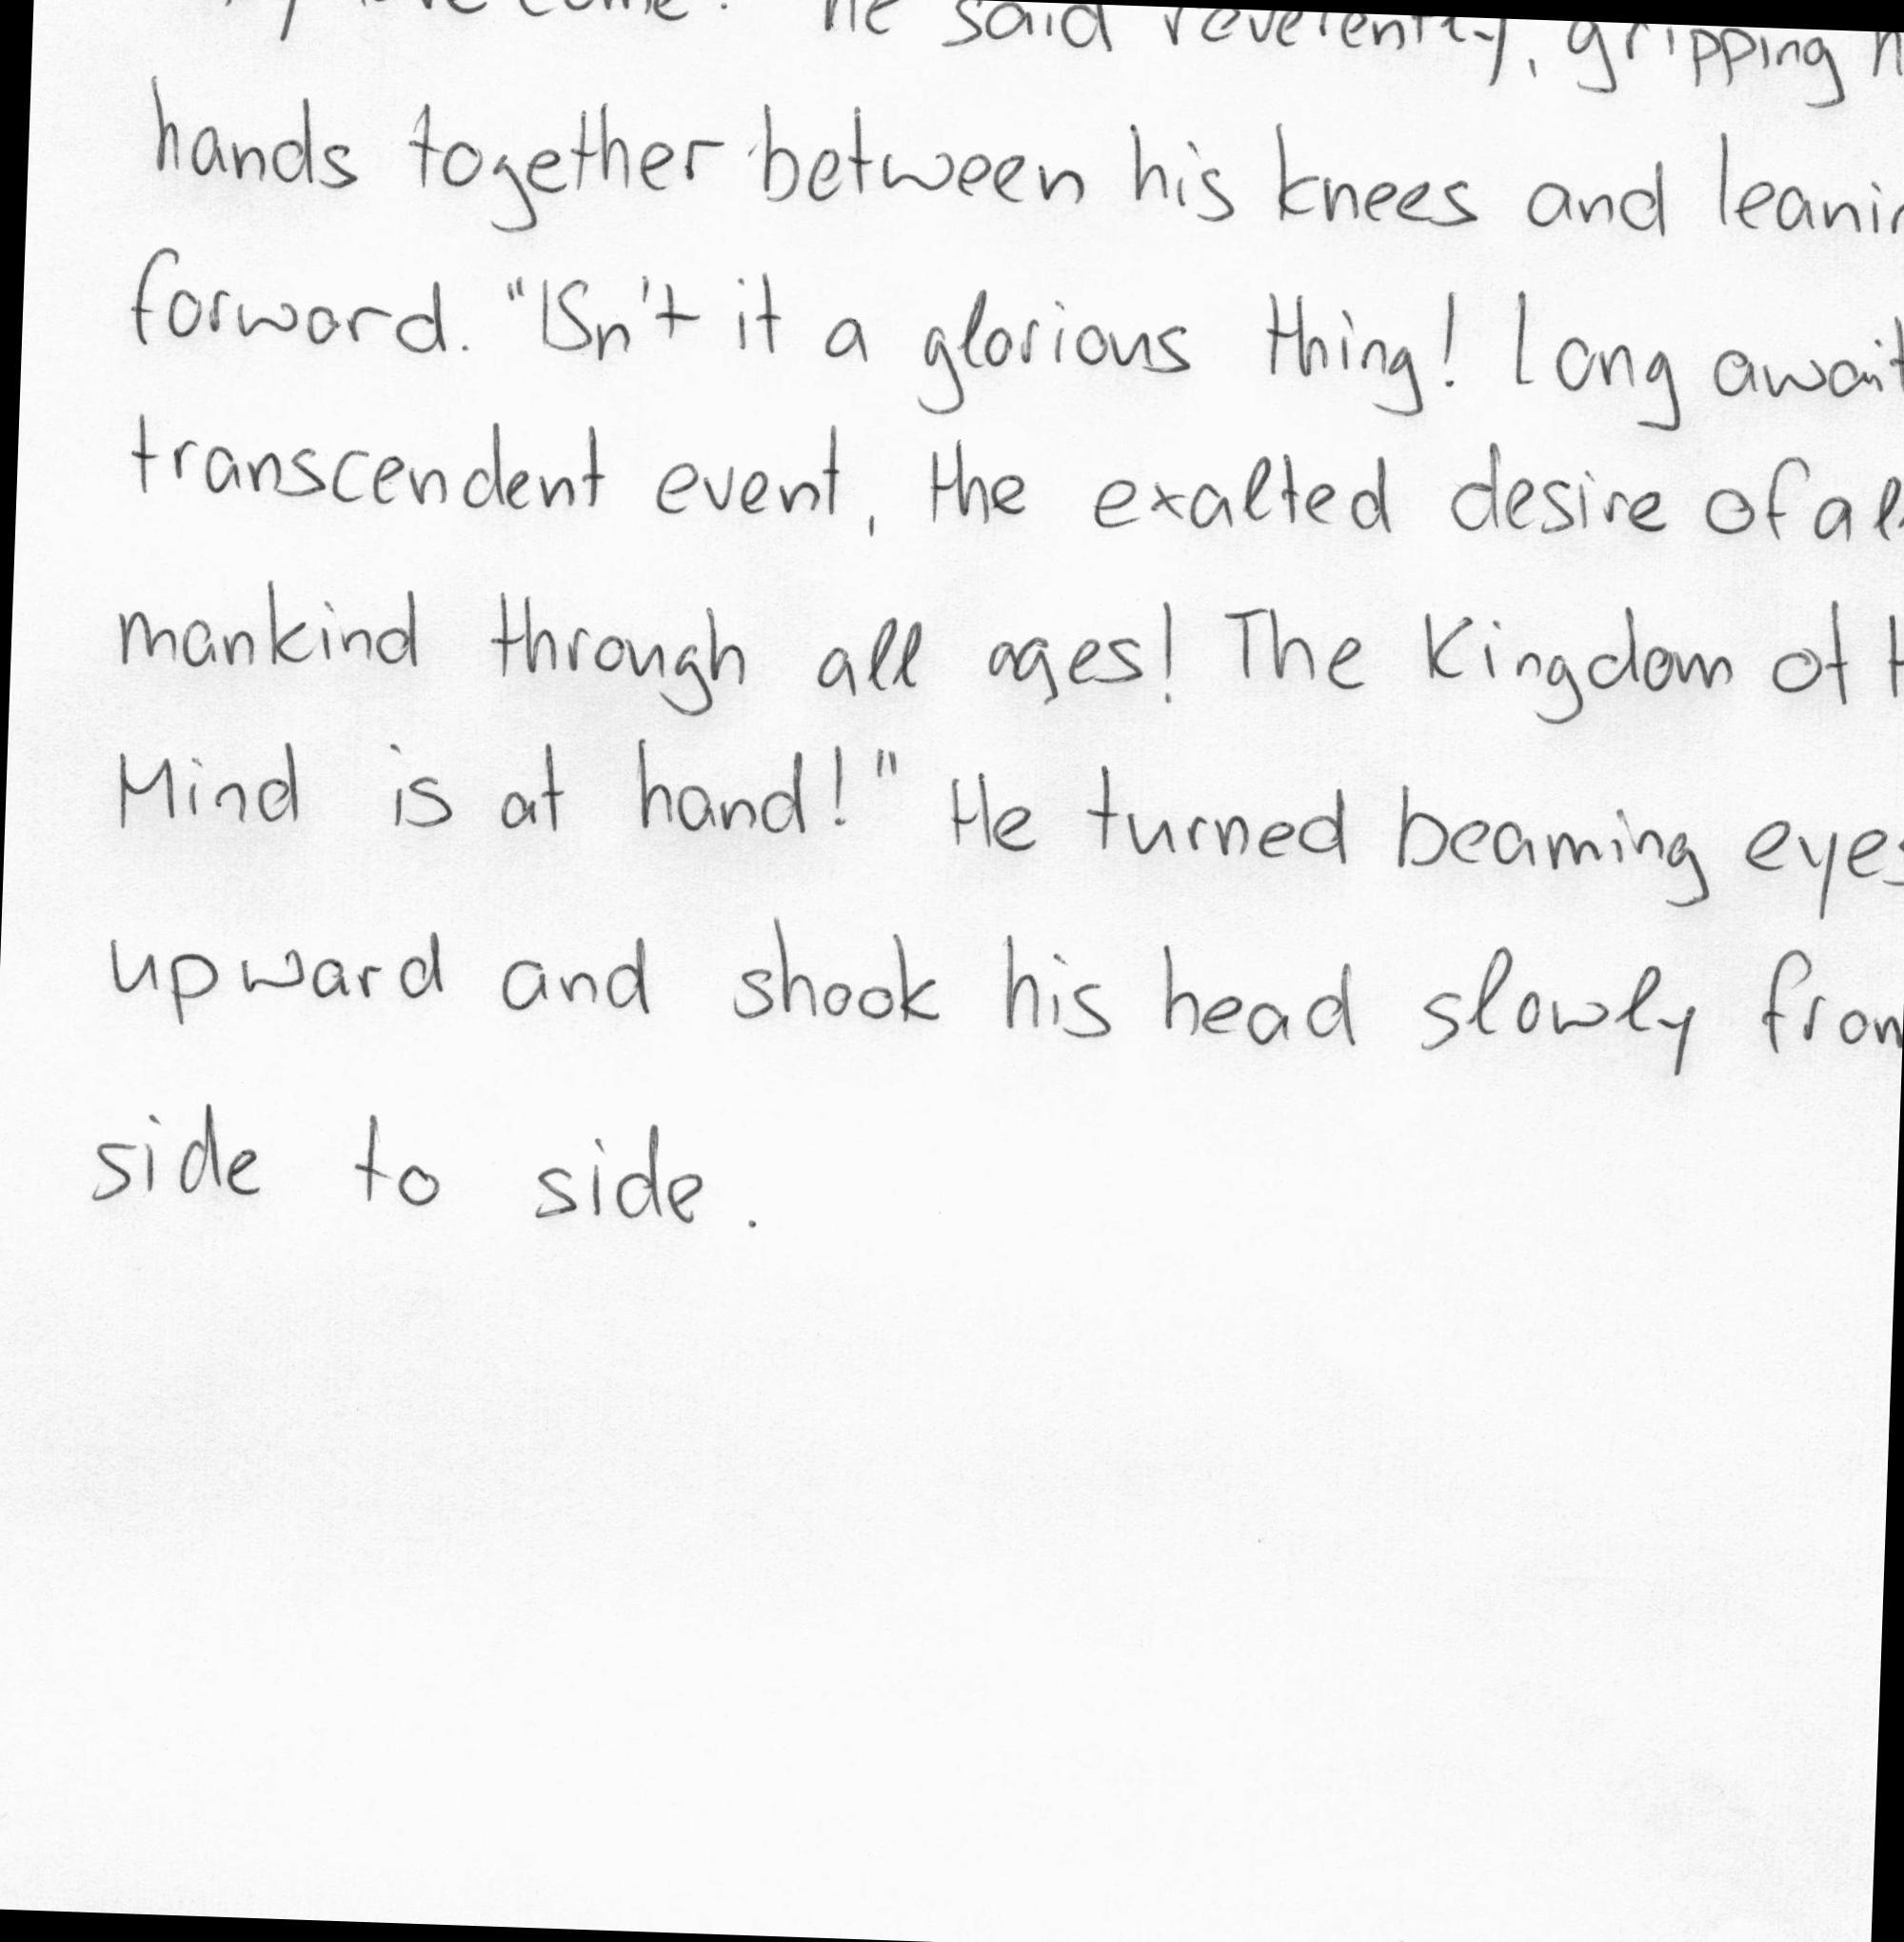 come! he said reverently, gripping
hands together between his knees and
forward. "Isn't it a glorious thing! Long
transcendent event, the exalted desire of
mankind through all ages! The Kingdom of
Mind is at hand!" He turned beaming eyes
upward and shook his head slowly from
side to side.